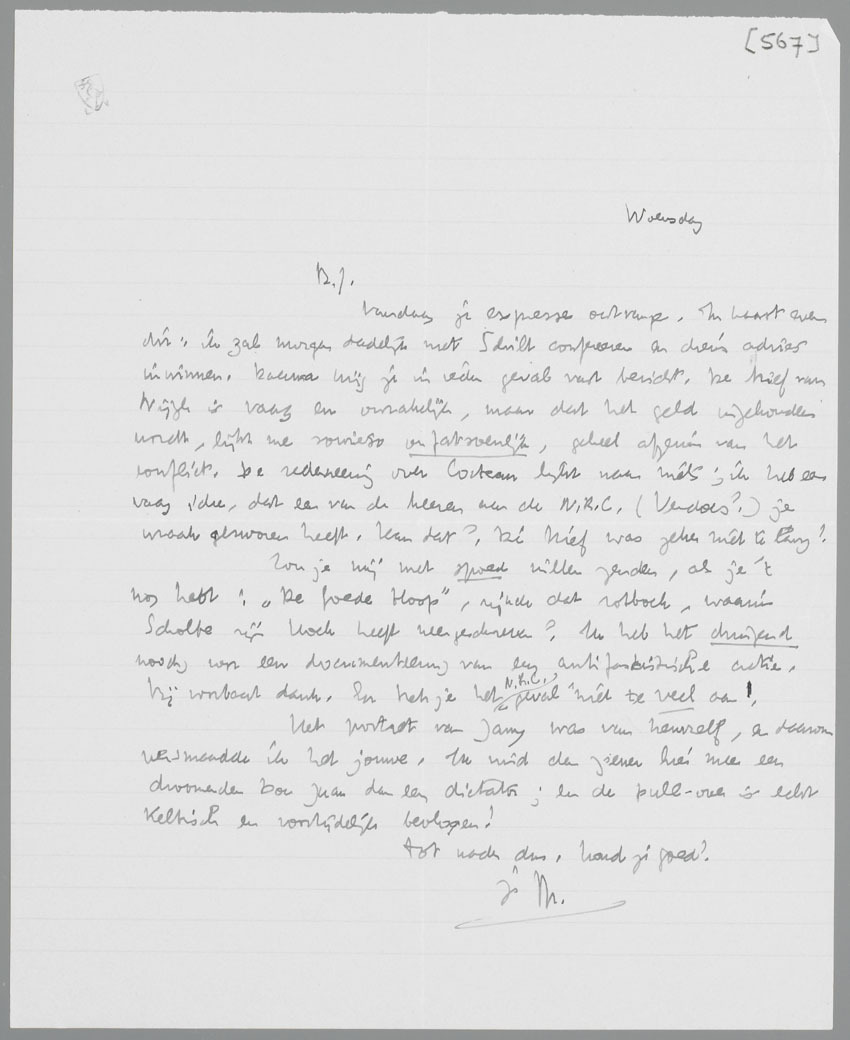 [567]
Woensdag
B.J.
Vandaag je expresse ontvangen. In haast even
dit: ik zal morgen dadelijk met Schilt confereeren en diens advies
inwinnen. Daarna krijg je in ieder geval vast bericht. De brief van
Nijgh is vaag en onzakelijk, maar dat het geld ingehouden
wordt, lijkt me sowieso onfatsoenlijk, geheel afgezien van het
conflict. De redeneering over Cocteau lijkt naar niets; ik heb een
vaag idee, dat een van de heeren van de N.R.C. (Verdoes?.) je
wraak gezworen heeft. Kan dat? De brief was zeker niet te lang?
Zou je mij met spoed willen zenden, als je 't
nog hebt: „De Goede Hoop", zijnde dat rotboek, waarin
Scholte zijn hoek heeft neergeschreven? Ik heb het dringend
noodig voor een documenteering van een antifascistische actie.
Bij voorbaat dank. En trek je het N.R.C. geval niet te veel aan!
Het portret van Jany was van hemzelf, en daarom
versmaadde ik het jouwe. Ik vind den ziener hier meer een
droomenden Don Juan dan een dictator; en de pull-over is echt
Keltisch en voortijdelijk bevlogen!
Tot nader dus. Houd je goed!
je M.